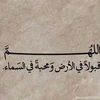 اللهُمَّ
قبولًا في الأرض ومحبةً في السَماء.